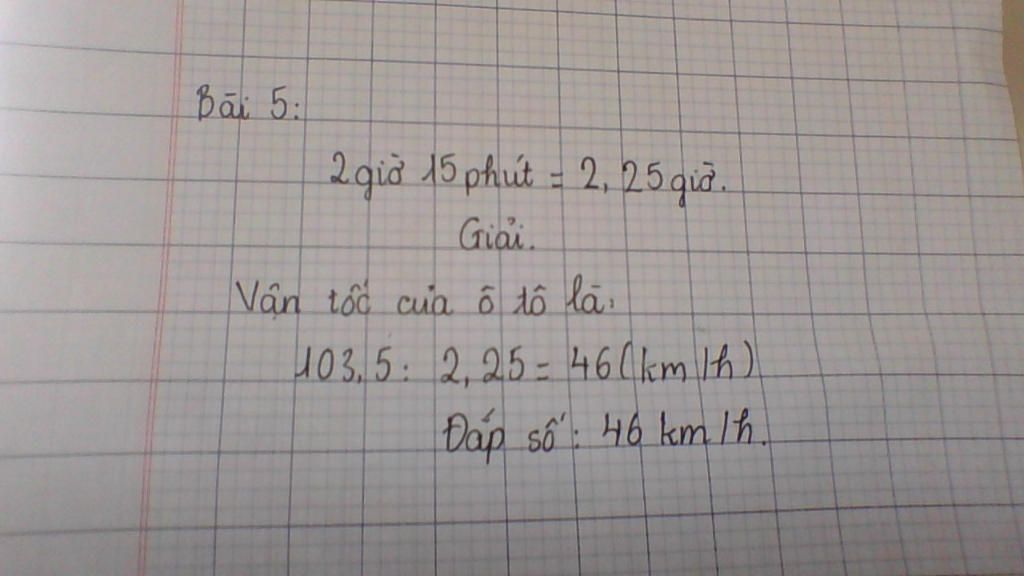 Bài 5:
2 giờ 15 phút = 2,25 giờ.
Giải.
Vận tốc của ô tô là:
103,5 : 2,25 = 46 (km/h)
Đáp số: 46 km/h.